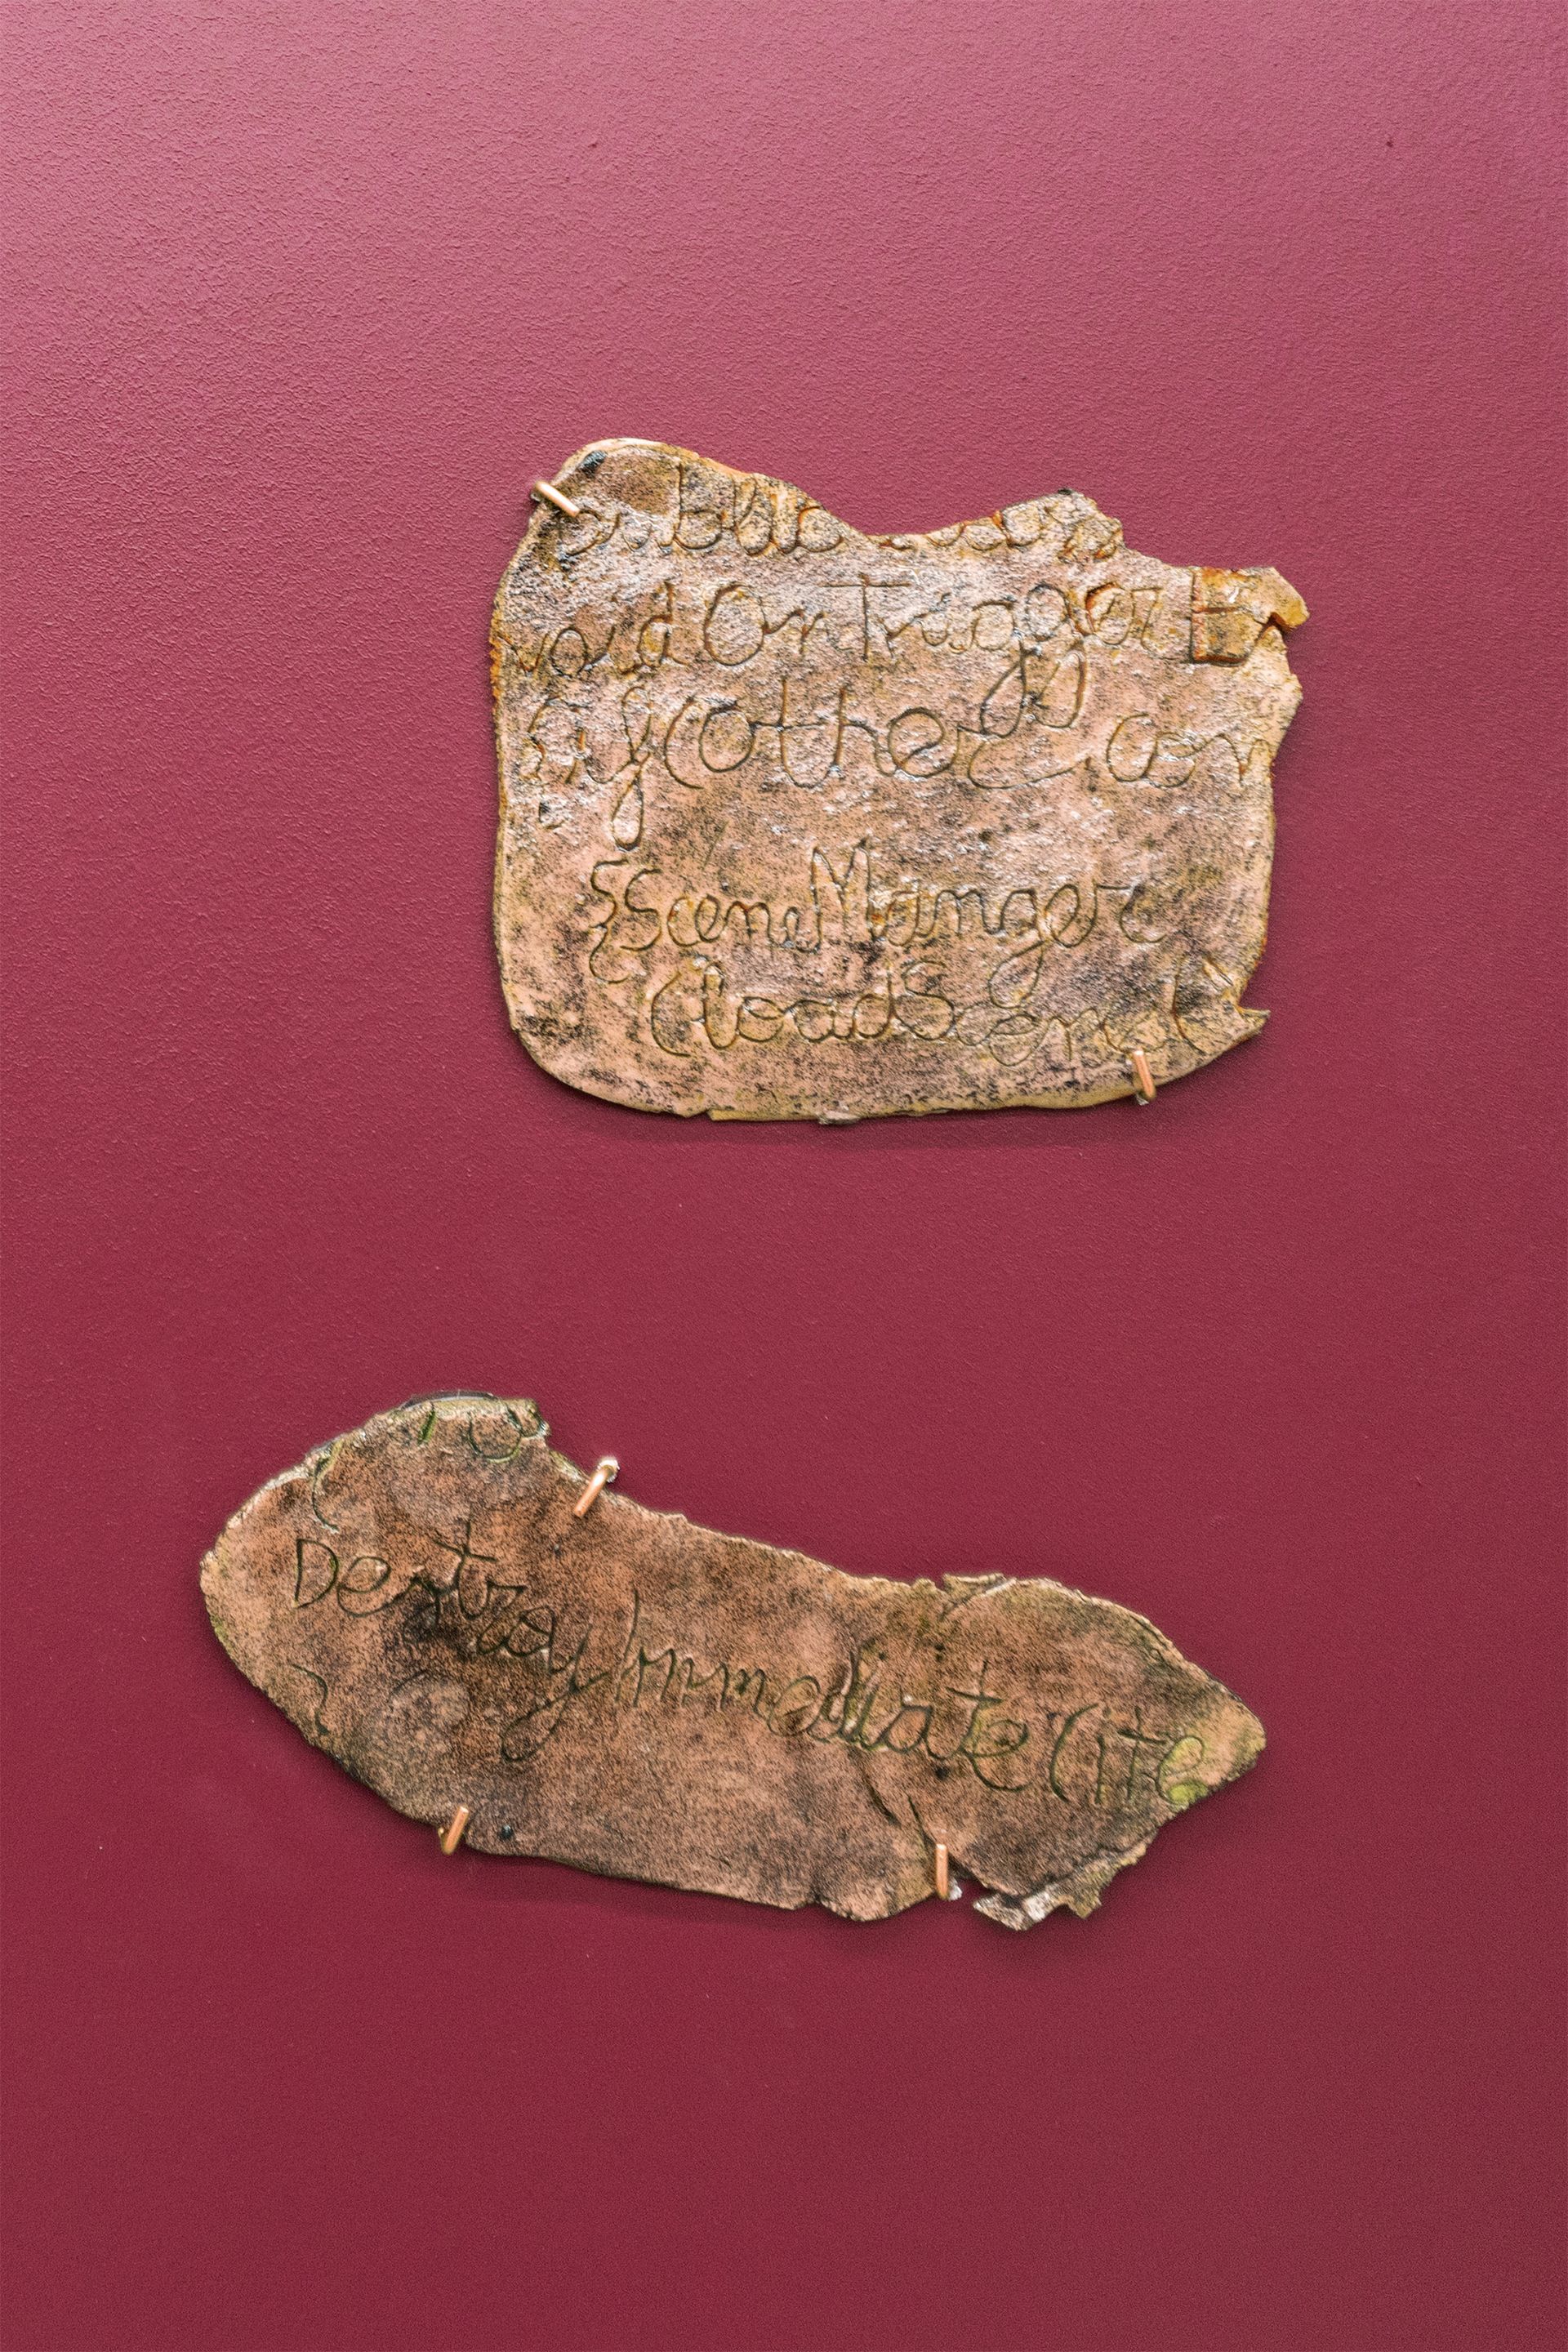 void OnTrigger E
if (other con
{SceneManger
(loadScene(
DestroyImmediate (ite
}